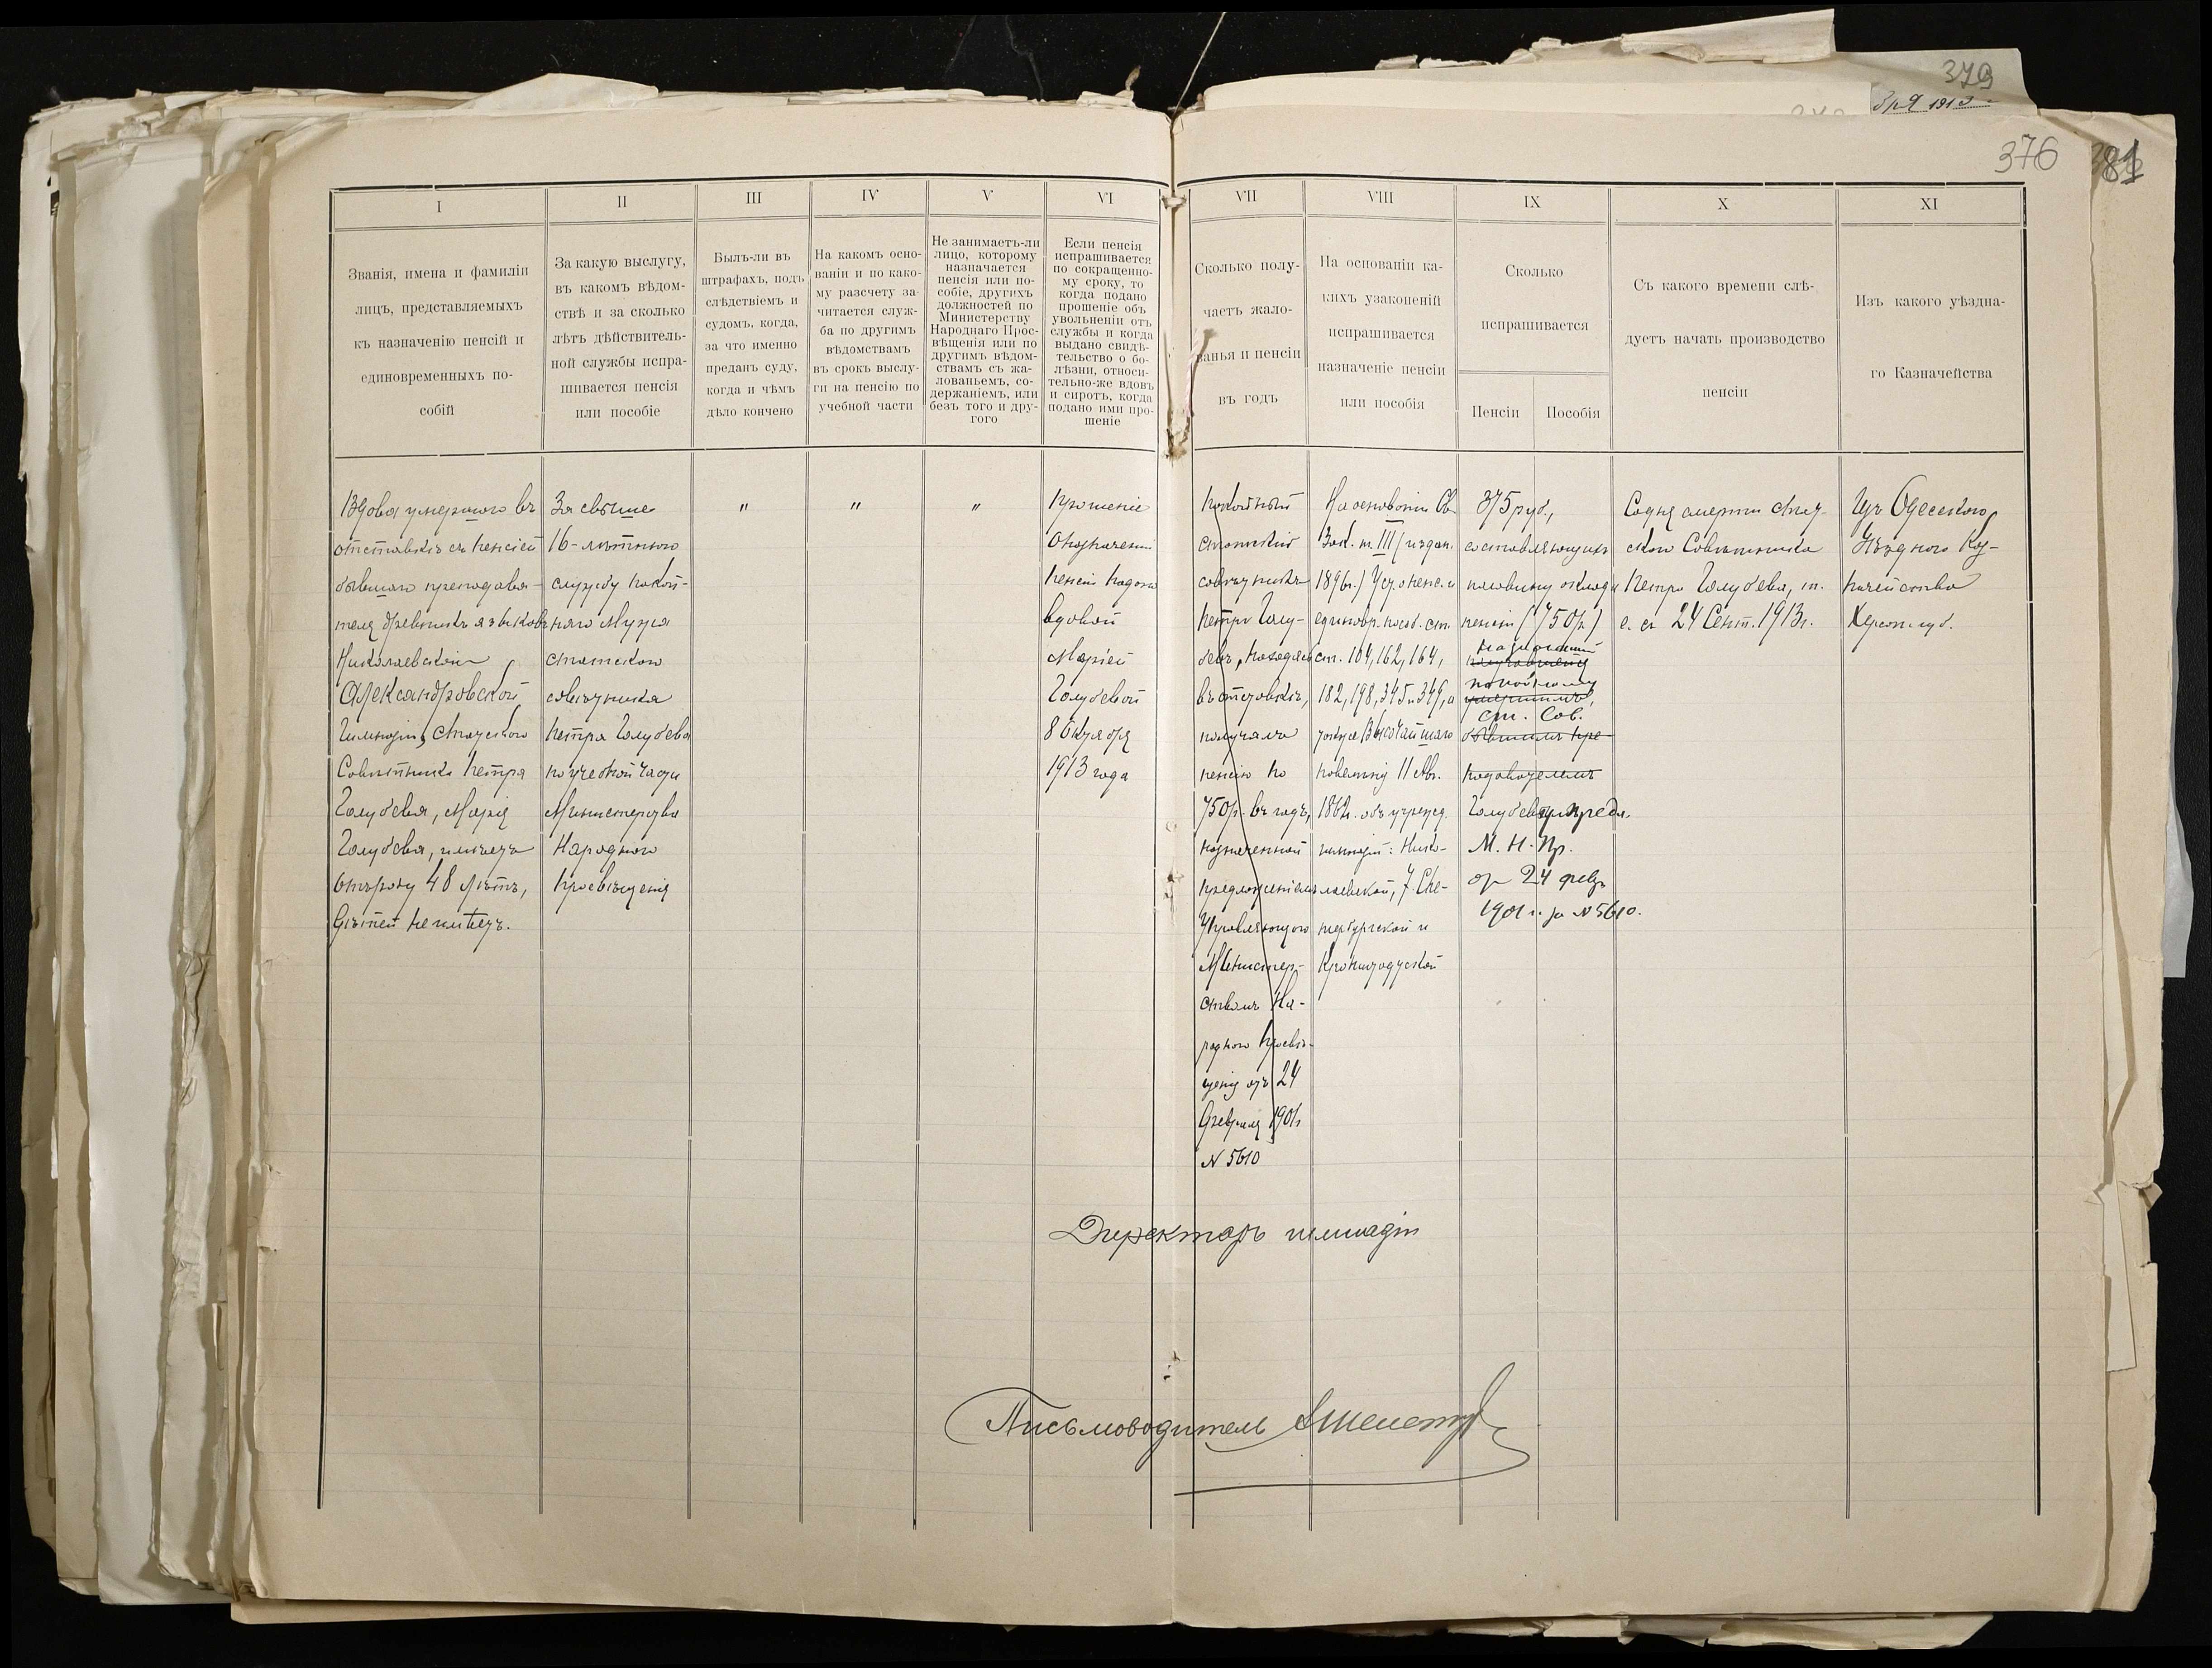 379
376
381
I
Званія, имена и фамиліи
лицъ, представляемыхъ
къ назначенію пенсій и
единовременныхъ по-
собій
II
За какую выслугу,
въ какомъ вѣдом-
ствѣ и за сколько
лѣтъ дѣйствитель-
ной службы испра-
шивается пенсія
или пособіе
III
Былъ-ли въ
штрафахъ, подъ
слѣдствіемъ и
судомъ, когда,
за что именно
преданъ суду,
когда и чѣмъ
дѣло кончено
IV
На какомъ осно-
ваніи и по како-
му разсчету за-
читается служ-
ба по другимъ
вѣдомствамъ
въ срокъ выслу-
ги на пенсію по
учебной части
V
Не занимаетъ-ли
лицо, которому
назначается
пенсія или по-
собіе, другихъ
должностей по
Министерству
Народнаго Прос-
вѣщенія или по
другимъ вѣдом-
ствамъ съ жа-
лованьемъ, со-
держаніемъ, или
безъ того и дру-
гого
VI
Если пенсія
испрашивается
по сокращенно-
му сроку, то
когда подано
прошеніе объ
увольненіи отъ
службы и когда
выдано свидѣ-
тельство о бо-
лѣзни, относи-
тельно-же вдовъ
и сиротъ, когда
подано ими про-
шеніе
VII
Сколько полу-
чаетъ жало-
ванья и пенсіи
въ годъ
VIII
На основаніи ка-
кихъ узаконеній
испрашивается
назначеніе пенсіи
или пособія
IX
Сколько
испрашивается
Пенсіи
Пособія
X
Съ какого времени слѣ-
дуетъ начать производство
пенсіи
XI
Изъ какого уѣздна-
го Казначейства
Вдова умершаго въ
отставкѣ съ пенсіей
бывшаго преподава-
теля древнихъ языковъ
Николаевской
Александровской
Гимназіи, Статскаго
Совѣтника Петра
Голубева, Марія
Голубева, имѣетъ
отъ роду 48 лѣтъ,
дѣтей не имѣетъ.
За свыше
16-лѣтнюю
службу покой-
наго мужа
статскаго
совѣтника
Петра Голубева
по учебной части
Министерства
Народнаго
Просвѣщенія
"
"
"
Прошеніе
о назначеніи
пенсіи подано
вдовой
Маріей
Голубевой
8 Октября
1913 года
Покойный
статскій
совѣтникъ
Петръ Голу-
бевъ, находясь
въ отставкѣ,
получалъ
пенсію по
750 р. въ годъ,
назначенной
предложеніемъ
Управляющаго
Министер-
ствомъ На-
роднаго Просвѣ-
щенія отъ 24
Февраля 1901 г.
№ 5610
На основаніи Св.
Зак. т. III (издан.
1896 г.) Уст. о пенс. и
единовр. пособ. ст.
ст. 104, 162, 164,
182, 198, 345 и 349, а
также Высочайшаго
повелѣнія 11 Авг.
1862 г. объ учрежд.
гимназій: Нико-
лаевской, 7 С.Пе-
тербургской и
Кронштадтской
375 руб.,
составляющихъ
половину оклада
пенсіи (750 р.)
назначенной
покойному
ст. Сов.
бывшимъ пре-
подавателемъ
Голубеву предл.
М. Н. Пр.
от 24 февр.
1901 г. за № 5610.
Со дня смерти Стат-
скаго Совѣтника
Петра Голубева, т.
е. съ 24 Сент. 1913 г.
Изъ Одесскаго
Уѣзднаго Каз-
начейства
Херсон. губ.
Директоръ гимназіи
Письмоводитель